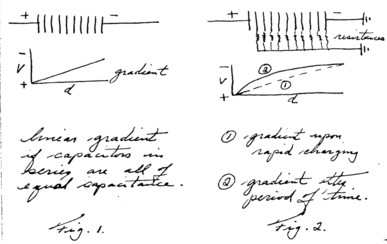 + −
− V + d
gradient
linear gradient
if capacitors in
series are all of
equal capacitance.
Fig. 1.
+ −
resistances
− V + d
② ①
① gradient upon
rapid charging
② gradient after
period of time.
Fig. 2.